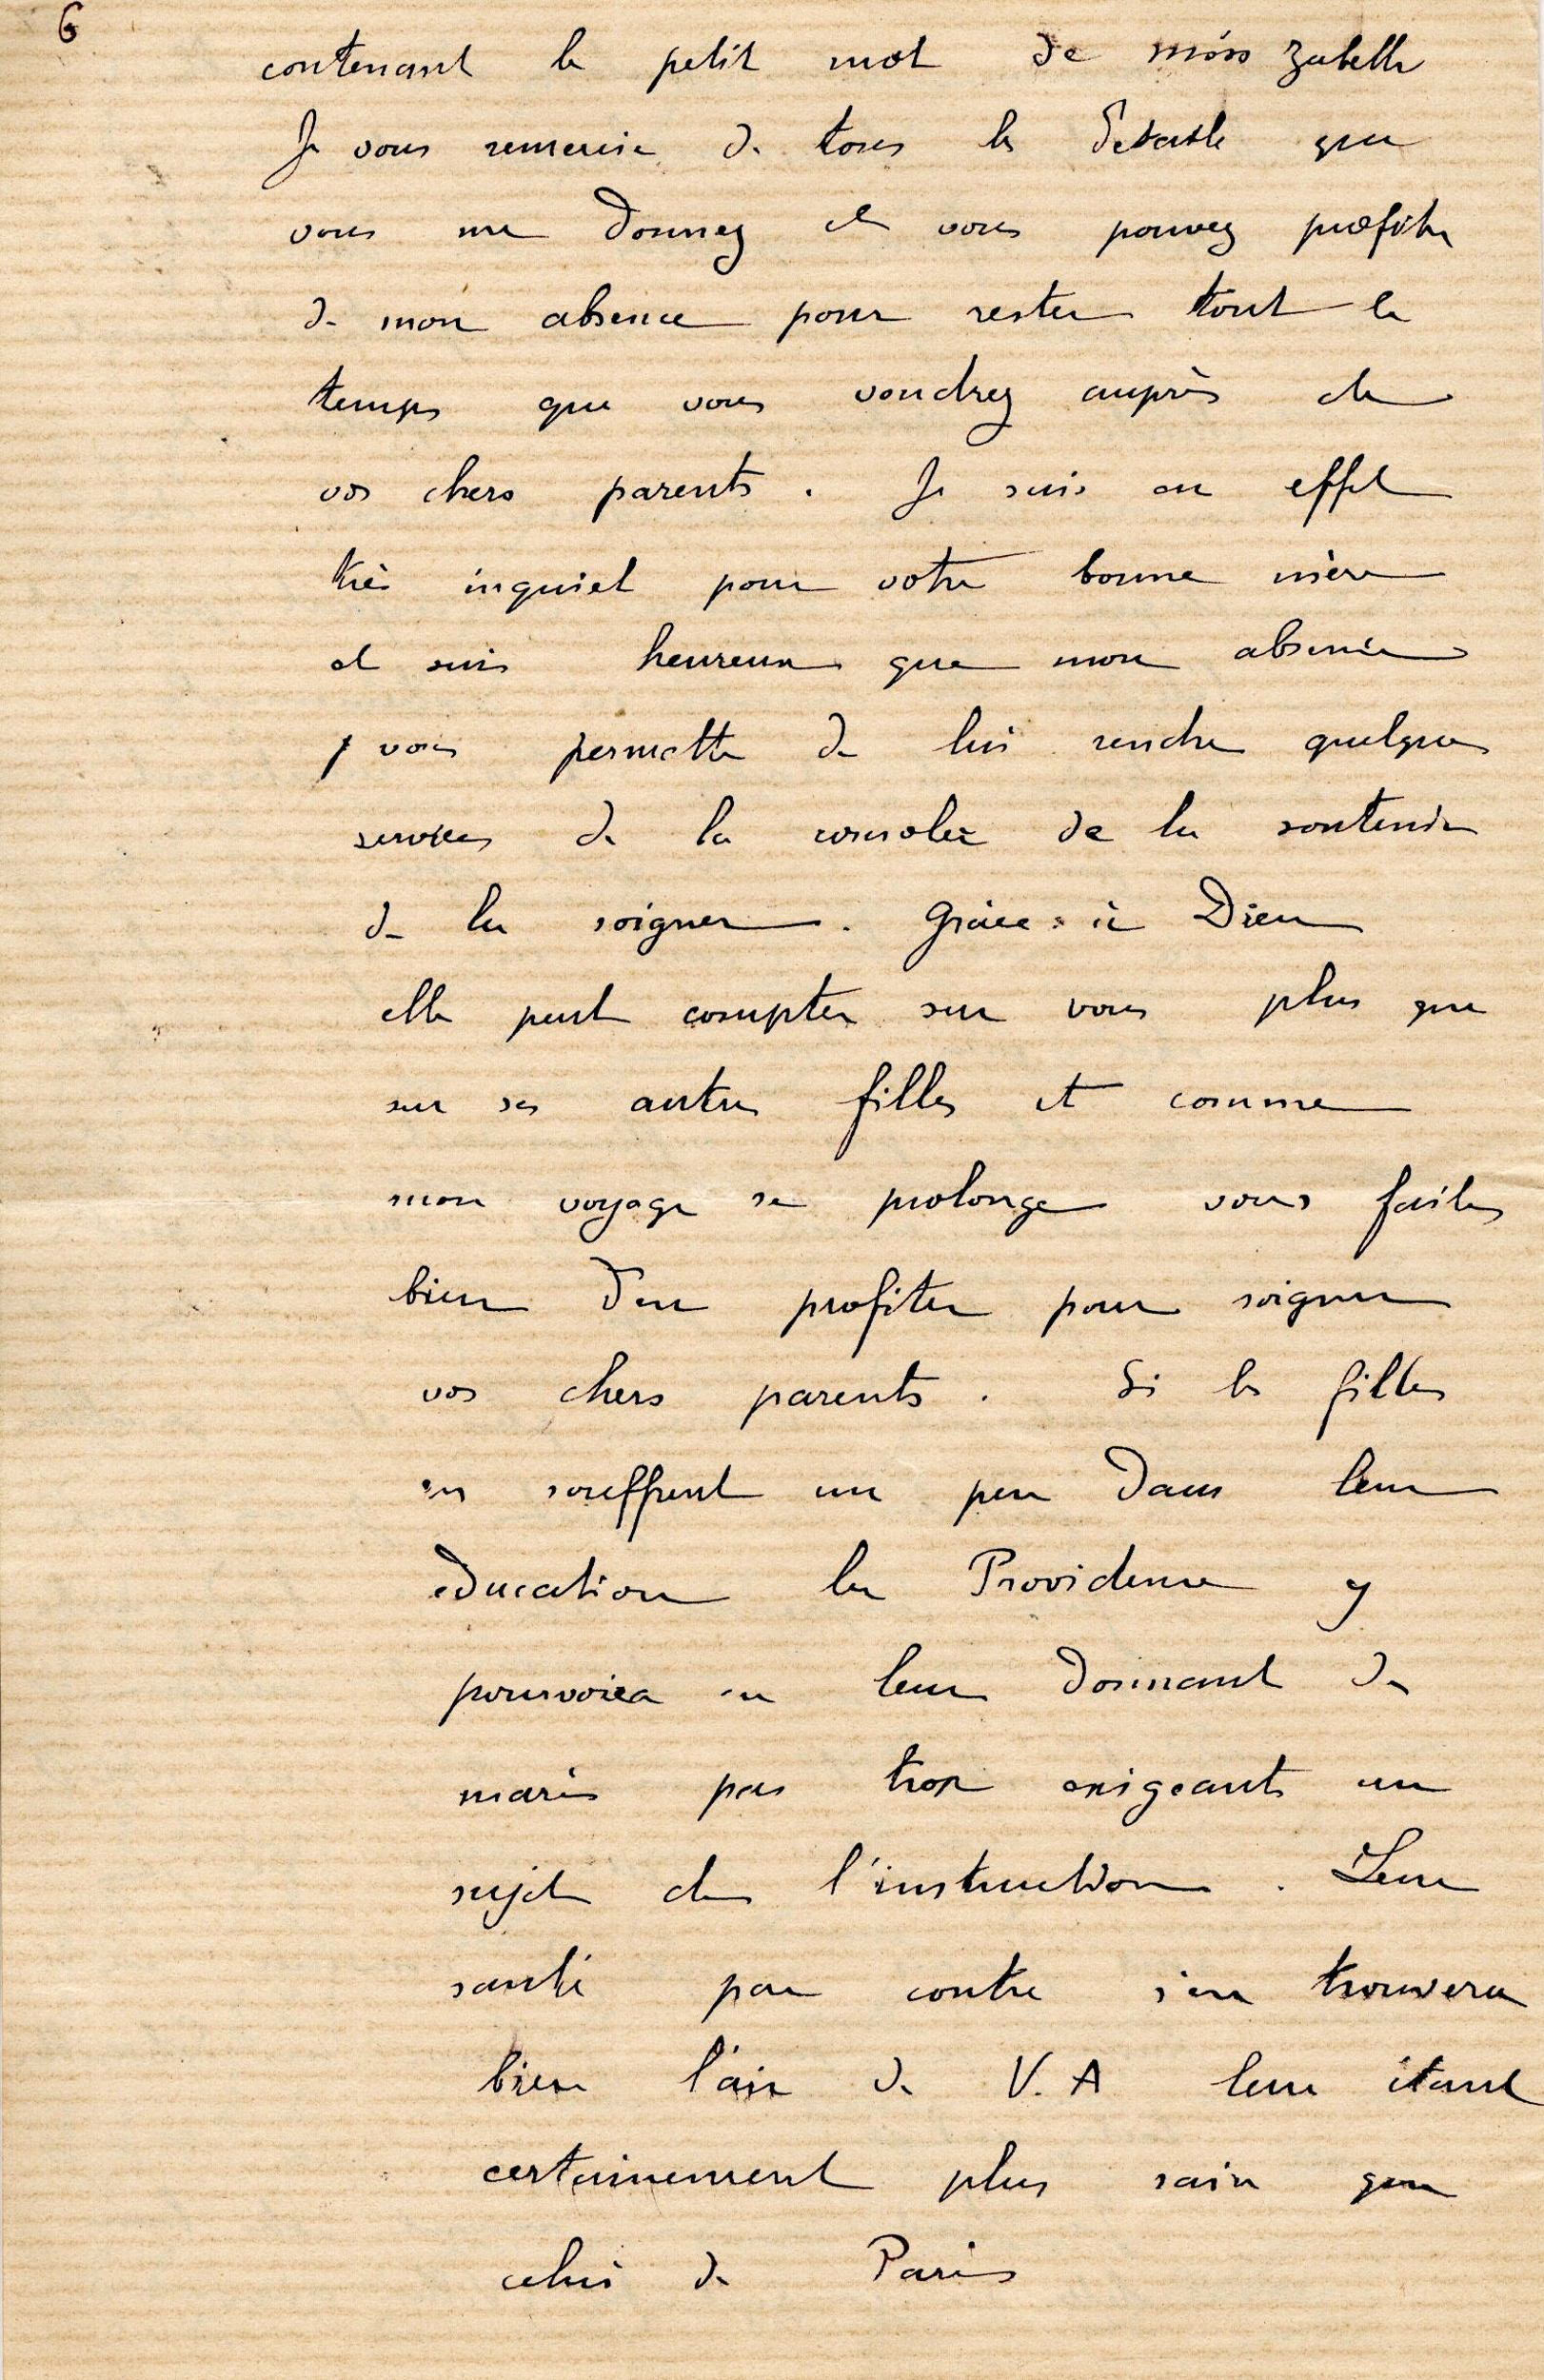 6
contenant le petit mot de miss Zabelle
Je vous remercie de tous les détails que
vous me donnez et vous pouvez profiter
de mon absence pour rester tout le
temps que vous voudrez auprès de
vos chers parents. Je suis en effet
très inquiet pour votre bonne mère
et suis heureux que mon absence
vous permette de lui rendre quelques
services de la consoler de la soutenir
de la soigner. Grâce à Dieu
elle peut compter sur vous plus que
sur ses autres filles et comme
mon voyage se prolonge vous faites
bien d'en profiter pour soigner
vos chers parents. Si les filles
en souffrent un peu dans leur
éducation la Providence y
pourvoira en leur donnant des
maris pas trop exigeants au
sujet de l'instruction. Leur
santé par contre s'en trouvera
bien l'air de V. A leur étant
certainement plus sain que
celui de Paris